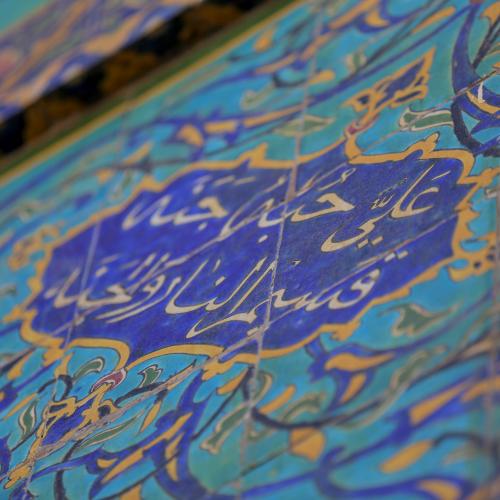 علي حبه جنه
قسيم النار والجنه